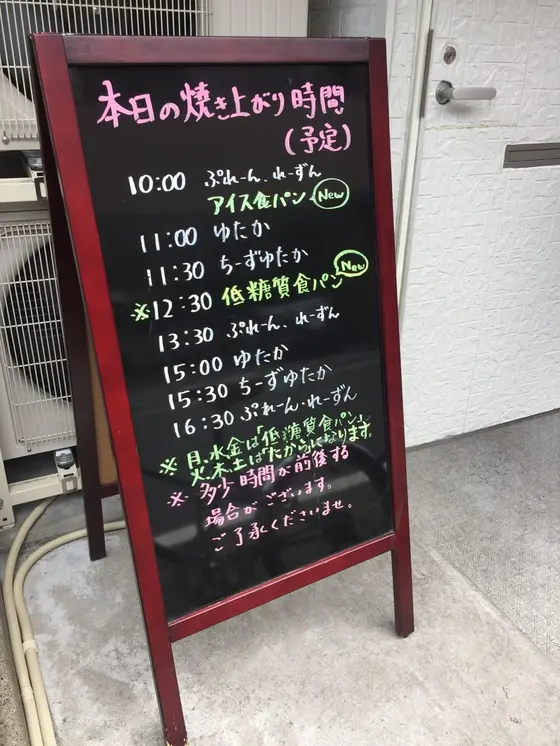 本日の焼き上がり時間
(予定)
10:00 ぷれーん、れーずん
アイス食パン New
11:00 ゆたか
11:30 ちーずゆたか
※12:30 低糖質食パン New
13:30 ぷれーん、れーずん
15:00 ゆたか
15:30 ちーずゆたか
16:30 ぷれーん・れーずん
※月、水金は「低糖質食パン」
火、木土は「たから」になります。
※多少時間が前後する
場合がございます。
ご了承くださいませ。